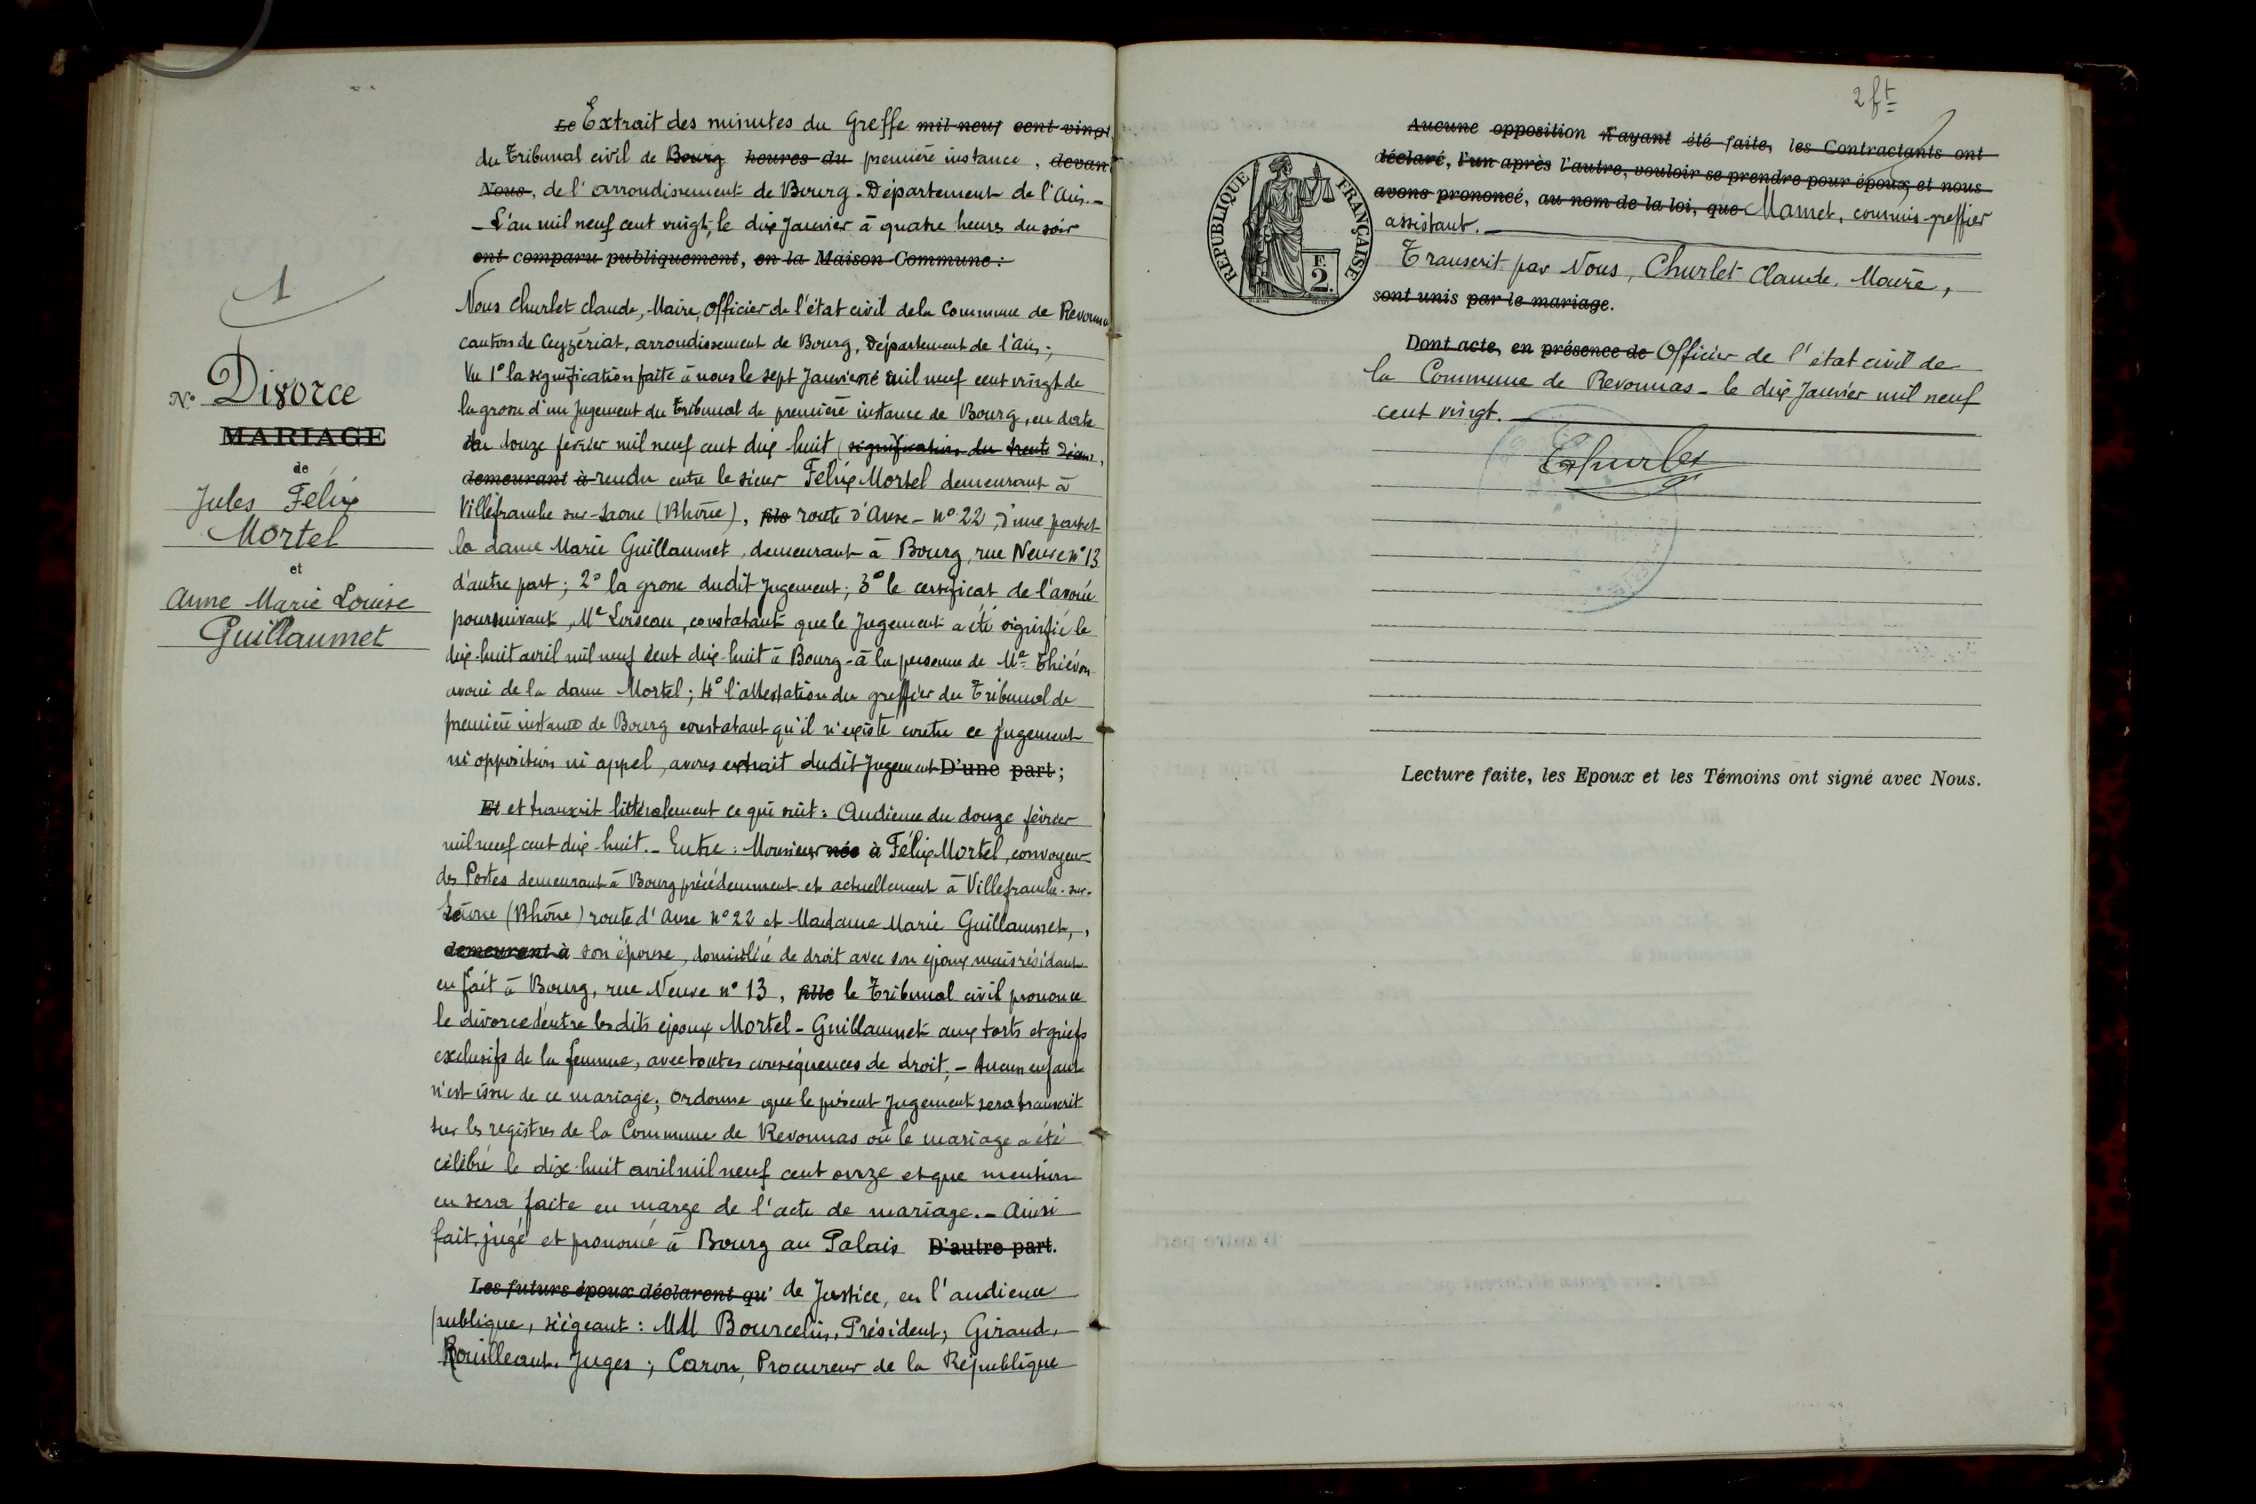 1
N° Divorce
MARIAGE
de
Jules Félix
Mortel
et
Anne Marie Louise
Guillaumet
Le Extrait des minutes du Greffe mil neuf cent vingt
du Tribunal civil de Bourg heures du première instance, devant
Nous, de l'arrondissement de Bourg. Département de l'Ain.-
- L'an mil neuf cent vingt, le dix Janvier à quatre heures du soir
ont comparu publiquement, en la Maison Commune :
Nous Churlet Claude, Maire, Officier de l'état civil de la Commune de Revonnas
canton de Ceyzériat, arrondissement de Bourg, Département de l'Ain;
Vu 1° la signification faite à nous le sept Janvier mil neuf cent vingt de
la grosse d'un Jugement du Tribunal de première instance de Bourg, en date
du douze février mil neuf cent dix huit (signification du trente
demeurant à rendu entre le sieur Félix Mortel demeurant à
Villefranche sur-Saone (Rhône), fils route d'Anse - n° 22, d'une part et
la dame Marie Guillaumet, demeurant à Bourg, rue Neuve n° 13
d'autre part; 2° la grosse dudit Jugement; 3° le certificat de l'avoué
poursuivant, Me Loiseau, constatant que le Jugement a été signifié le
dix-huit avril mil neuf cent dix-huit à Bourg - à la personne de Me Thiévon
avoué de la dame Mortel; 4° l'attestation du greffier du Tribunal de
première instance de Bourg constatant qu'il n'existe contre ce Jugement
ni opposition ni appel, avons extrait dudit Jugement D'une part ;
Et et transcrit littéralement ce qui suit : Audience du douze février
mil neuf cent dix-huit. - Entre : Monsieur née à Félix Mortel, convoyeur
des Postes demeurant à Bourg précédemment et actuellement à Villefranche-sur-
Saône (Rhône) route d'Anse n° 22 et Madame Marie Guillaumet, ,
demeurant à son épouse, domiciliée de droit avec son époux mais résidant
en fait à Bourg, rue Neuve n° 13, fille le Tribunal civil prononce
le divorce d'entre les dits époux Mortel - Guillaumet aux torts et griefs
exclusifs de la femme, avec toutes conséquences de droit; - Aucun enfant
n'est issu de ce mariage; Ordonne que le présent Jugement sera transcrit
sur les registres de la Commune de Revonnas où le mariage a été
célébré le dix-huit avril mil neuf cent onze et que mention
en sera faite en marge de l'acte de mariage. - Ainsi
fait, jugé et prononcé à Bourg au Palais D'autre part.
Les futurs époux déclarent qu' de Justice, en l'audience
publique, siégeant : MM Bourcelin, Président, Giraud,
Rouilleaut, Juges; Caron, Procureur de la République
2 ft
RÉPUBLIQUE FRANÇAISE
F.
2
Aucune opposition n'ayant été faite, les Contractants ont
déclaré, l'un après l'autre, vouloir se prendre pour époux, et nous
avons prononcé, au nom de la loi, que Mamet, commis-greffier
assistant.
Transcrit par Nous, Churlet Claude, Maire,
sont unis par le mariage.
Dont acte, en présence de Officier de l'état civil de
la Commune de Revonnas - le dix Janvier mil neuf
cent vingt.
Churlet
Lecture faite, les Epoux et les Témoins ont signé avec Nous.